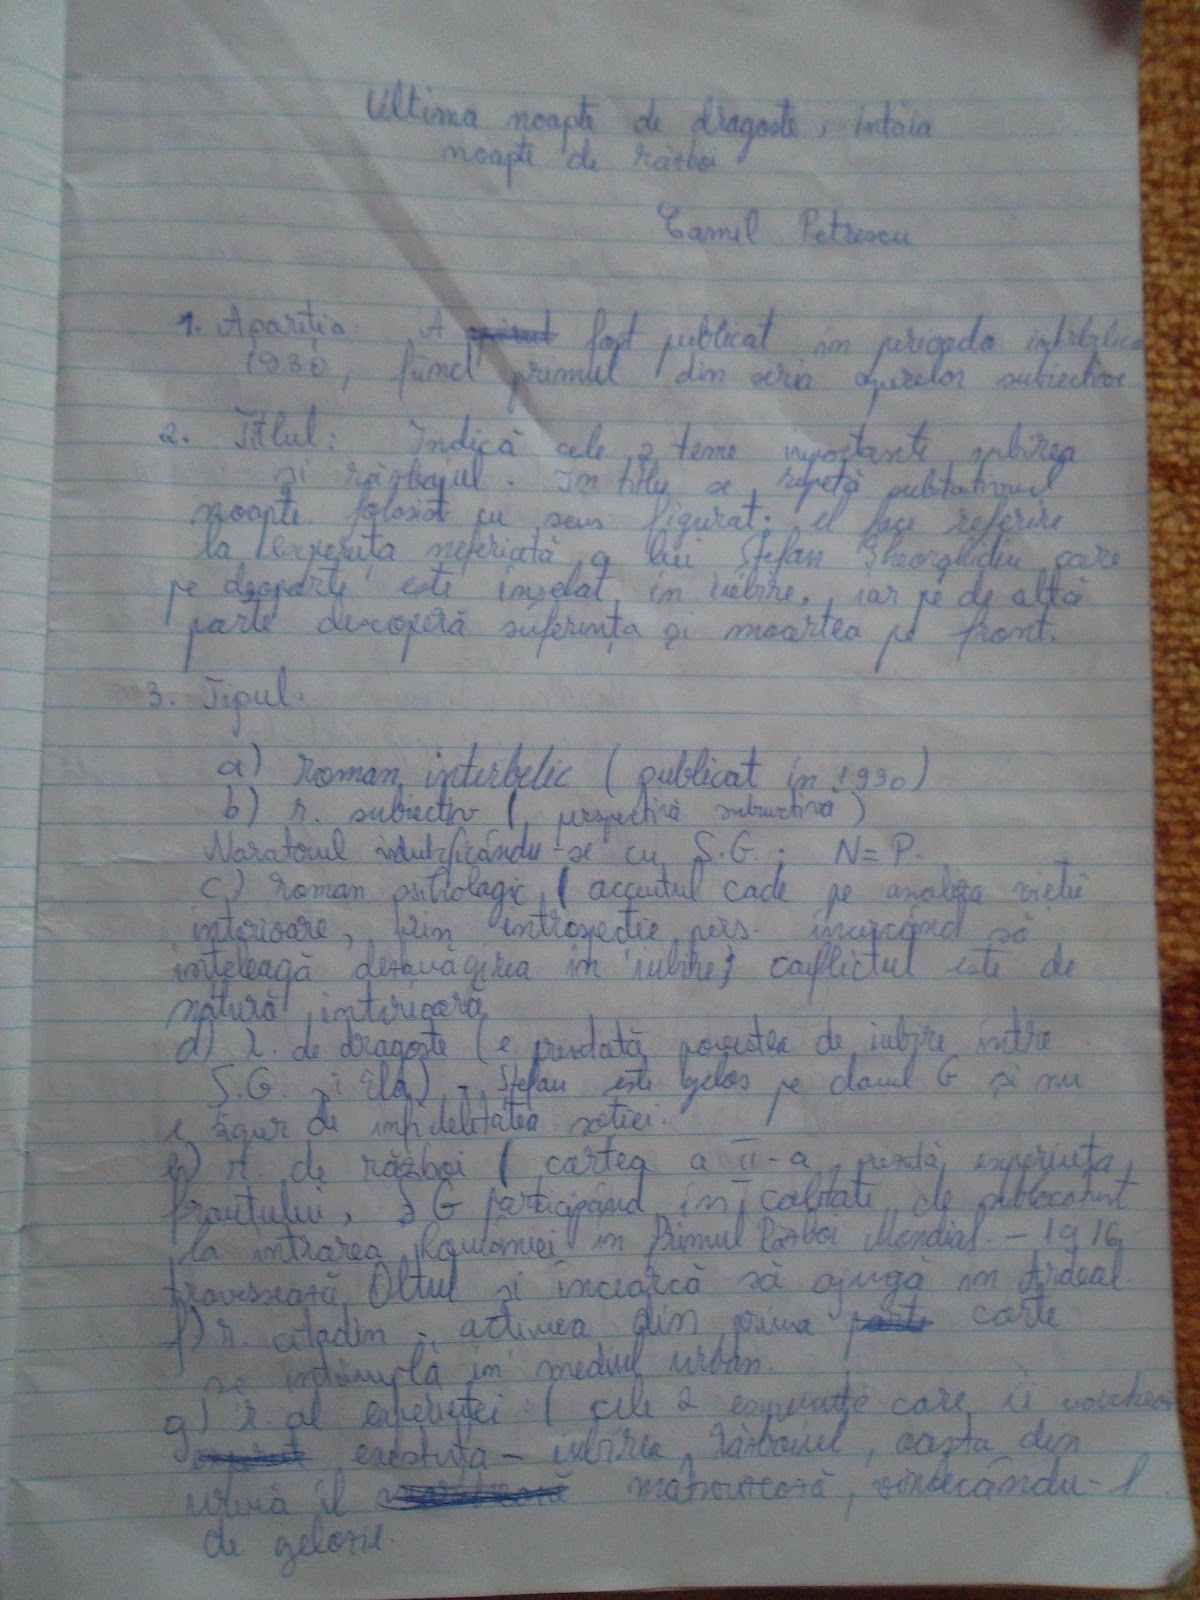 Ultima noapte de dragoste, întâia
noapte de război
Camil Petrescu
1. Apariția: A fost publicat în perioada interbelică
1930, fiind primul din seria operelor subiective
2. Titlul: Indică cele 2 teme importante iubirea
și războiul. În titlu se repetă substantivul
noapte folosit cu sens figurat; el face referire
la experiența nefericită a lui Ștefan Gheorghidiu care
pe deoparte este înșelat în iubire, iar pe de altă
parte descoperă suferința și moartea pe front.
3. Tipul:
a) roman interbelic (publicat în 1930)
b) r. subiectiv (perspectivă subiectivă)
Naratorul identificându-se cu Ș.G.; N=P.
c) roman psihologic (accentul cade pe analiza vieții
interioare, prin introspecție pers. încercând să
înțeleagă dezamăgirea în iubire; conflictul este de
natură interioară
d) r. de dragoste (e povestea de iubire între
Ș.G. și Ela) - Ștefan este gelos pe domnul G și nu
e sigur de infidelitatea soției.
e) r. de război (cartea a II-a prezintă experiența
frontului, Ș G participând în calitate de sublocotent
la intrarea României în Primul Război Mondial - 1916
traversează Oltul și încearcă să ajungă în Ardeal.
f) r. citadin; acțiunea din prima carte
se întâmplă în mediul urban.
g) r. al experienței: (cele 2 experiențe care îi
existența - iubirea, Războiul, aasta din
urmă îl maturizează, vindecându-l
de gelozie.